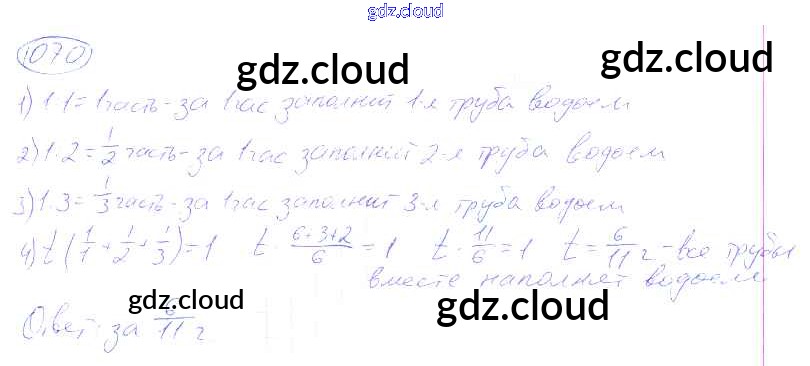 gdz.cloud
1070
gdz.cloud gdz.cloud
1) 1:1=1 часть - за 1 час заполнит 1-я труба водоем
2) 1:2=1/2 часть - за 1 час заполнит 2-я труба водоем
3) 1:3=1/3 часть - за 1 час заполнит 3-я труба водоем
4) t(1/1+1/2+1/3)=1 t·(6+3+2)/6=1 t·11/6=1 t=6/11 ч - все трубы
вместе наполнят водоем
gdz.cloud gdz.cloud
Ответ: за 6/11 ч